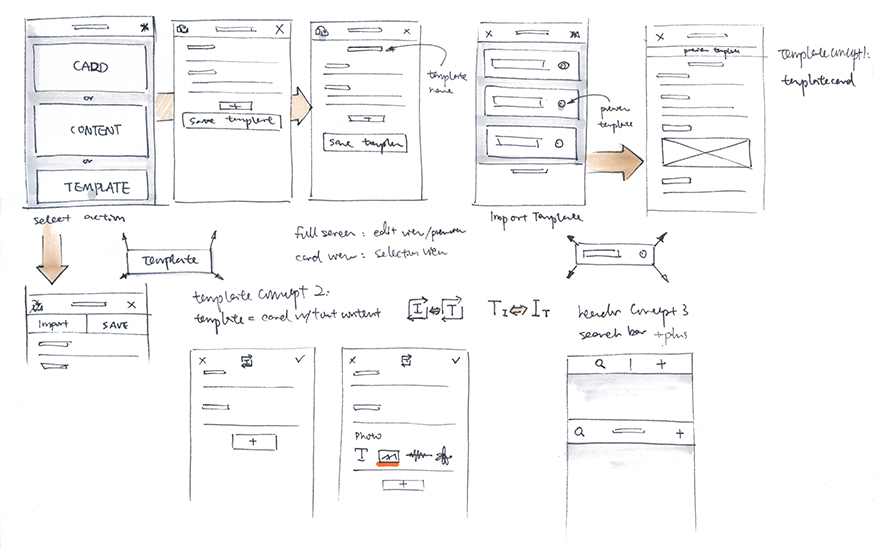 CARD
or
CONTENT
or
TEMPLATE
select action
+
save templent
template
name
+
save templen
preview
template
Import Template
preview template
Template concept 1:
template card
full screen : edit view/preview
card view : selection view
Template
Import
SAVE
template concept 2:
template = card w/out content
I
T
T I
I T
header concept 3
search bar + plus
+
Photo
T
+
+
+